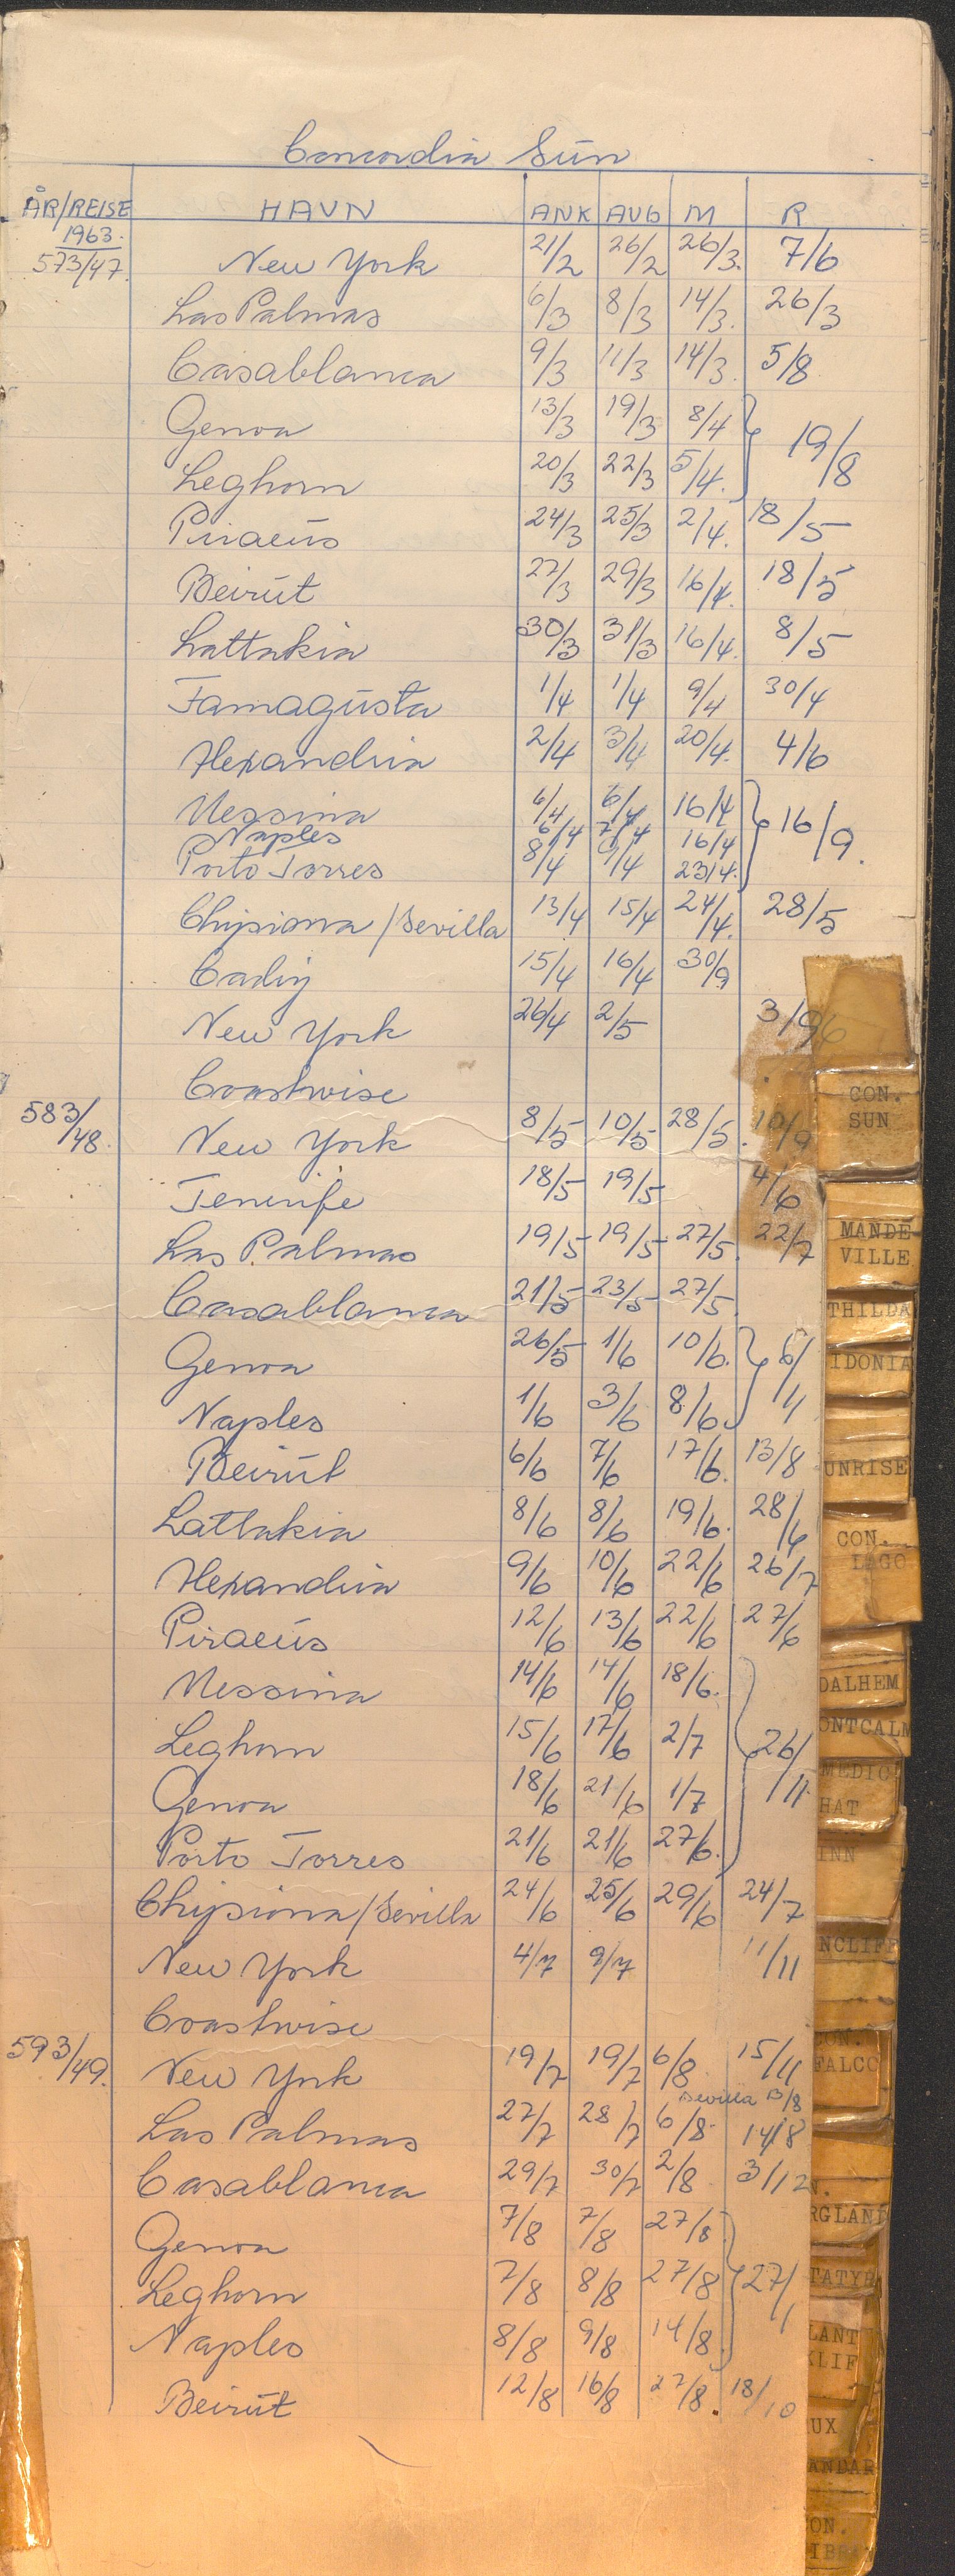 Concordia Sun
ÅR/REISE HAVN ANK AVG M R
1963.
573/47. New York 21/2 26/2 26/3. 7/6
Las Palmas 6/3 8/3 14/3. 26/3
Casablanca 9/3 11/3 14/3. 5/8
Genoa 13/3 19/3 8/4
Leghorn 20/3 22/3 5/4. 19/8
Piraeus 24/3 25/3 2/4. 18/5
Beirut 27/3 29/3 16/4. 18/5
Lattakia 30/3 31/3 16/4. 8/5
Famagusta 1/4 1/4 9/4 30/4
Alexandria 2/4 3/4 20/4. 4/6
Messina 6/4 6/4 16/4
Naples 6/4 7/4 16/4 16/9.
Porto Torres 8/4 9/4 23/4.
Chipiona/Sevilla 13/4 15/4 24/4. 28/5
Cadiz 15/4 16/4 30/9
New York 26/4 2/5
Coastwise
583/48. New York 8/5 10/5 28/5. 10/9
Tenerife 18/5 19/5 4/6
Las Palmas 19/5 19/5 27/5. 22/7
Casablanca 21/5 23/5 27/5.
Genoa 26/5 1/6 10/6.
Naples 1/6 3/6 8/6.
Beirut 6/6 7/6 17/6. 13/8
Lattakia 8/6 8/6 19/6. 28/6
Alexandria 9/6 10/6 22/6 26/7
Piraeus 12/6 13/6 22/6 27/6
Messina 14/6 14/6 18/6.
Leghorn 15/6 17/6 2/7 26/11.
Genoa 18/6 21/6 1/7
Porto Torres 21/6 21/6 27/6.
Chipiona/Sevilla 24/6 25/6 29/6 24/7
New York 4/7 9/7 11/11
Coastwise
593/49. New York 19/7 19/7 6/8 15/11
Sevilla 13/8
Las Palmas 27/7 28/7 6/8. 14/8
Casablanca 29/7 30/7 2/8 3/12
Genoa 7/8 7/8 27/8.
Leghorn 7/8 8/8 27/8 27/1
Naples 8/8 9/8 14/8.
Beirut 12/8 16/8 27/8. 18/10
CON.
SUN
MANDE-
VILLE
THILDA
IDONIA
UNRISE
CON.
LAGO
DALHEM
ONTCALM
MEDICI
HAT
INN
NCLIFF
CON.
FALCO
N.
RGLAND
TATYR
LANT
KLIF
UX
ANDAR
CON.